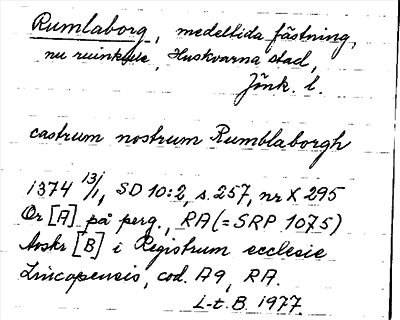 Rumlaborg, medeltida fästning,
nu ruinkulle, Huskvarna stad,
Jönk. l.
castrum nostrum Rumblaborgh
1374 13/1, SD 10:2, s. 257, nr X 295
Or [A] på perg., RA (= SRP 1075)
Avskr [B] i Registrum ecclesie
Lincopensis, cod. A9, RA.
L-t. B. 1977.